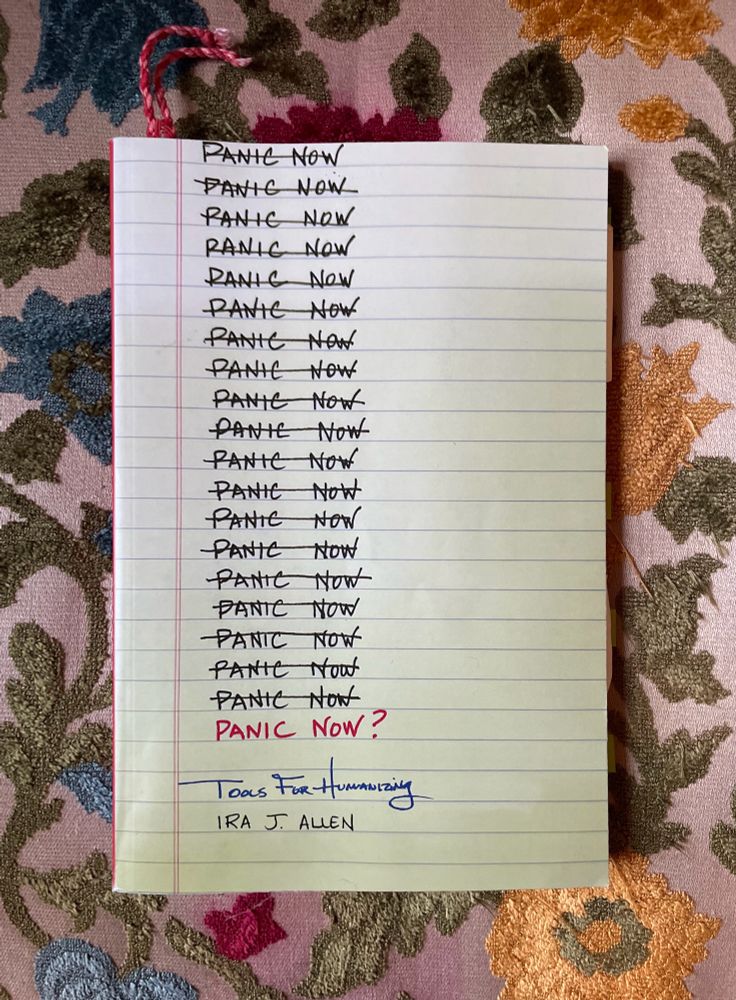 PANIC NOW
PANIC NOW
PANIC NOW
PANIC NOW
PANIC NOW
PANIC NOW
PANIC NOW
PANIC NOW
PANIC NOW
PANIC NOW
PANIC NOW
PANIC NOW
PANIC NOW
PANIC NOW
PANIC NOW
PANIC NOW
PANIC NOW
PANIC NOW
PANIC NOW
PANIC NOW?
TOOLS FOR HUMANIZING
IRA J. ALLEN